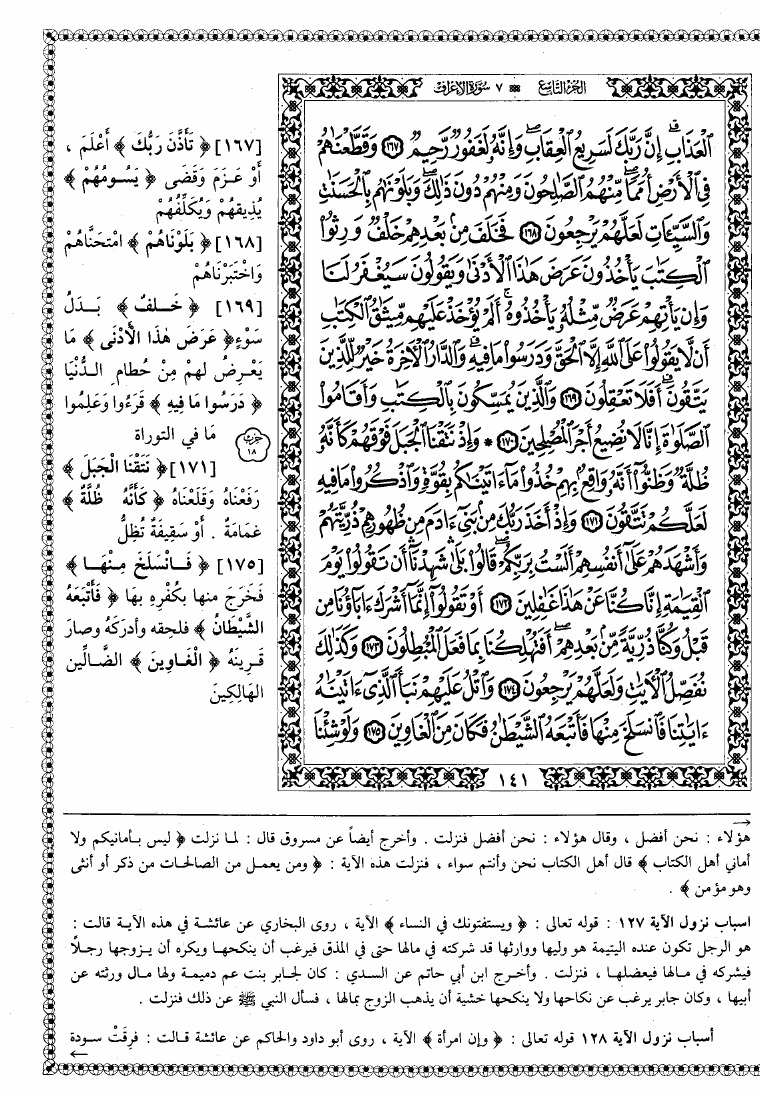 الجزء التاسع ٧ سورة الأعراف
ٱلْعَذَابِ ۖ إِنَّ رَبَّكَ لَسَرِيعُ ٱلْعِقَابِ ۖ وَإِنَّهُۥ لَغَفُورٌ رَّحِيمٌ ١٦٧ وَقَطَّعْنَٰهُمْ
فِى ٱلْأَرْضِ أُمَمًا ۖ مِّنْهُمُ ٱلصَّٰلِحُونَ وَمِنْهُمْ دُونَ ذَٰلِكَ ۖ وَبَلَوْنَٰهُم بِٱلْحَسَنَٰتِ
وَٱلسَّيِّـَٔاتِ لَعَلَّهُمْ يَرْجِعُونَ ١٦٨ فَخَلَفَ مِنۢ بَعْدِهِمْ خَلْفٌ وَرِثُوا۟
ٱلْكِتَٰبَ يَأْخُذُونَ عَرَضَ هَٰذَا ٱلْأَدْنَىٰ وَيَقُولُونَ سَيُغْفَرُ لَنَا
وَإِن يَأْتِهِمْ عَرَضٌ مِّثْلُهُۥ يَأْخُذُوهُ ۚ أَلَمْ يُؤْخَذْ عَلَيْهِم مِّيثَٰقُ ٱلْكِتَٰبِ
أَن لَّا يَقُولُوا۟ عَلَى ٱللَّهِ إِلَّا ٱلْحَقَّ وَدَرَسُوا۟ مَا فِيهِ ۗ وَٱلدَّارُ ٱلْـَٔاخِرَةُ خَيْرٌ لِّلَّذِينَ
يَتَّقُونَ ۗ أَفَلَا تَعْقِلُونَ ١٦٩ وَٱلَّذِينَ يُمَسِّكُونَ بِٱلْكِتَٰبِ وَأَقَامُوا۟
ٱلصَّلَوٰةَ إِنَّا لَا نُضِيعُ أَجْرَ ٱلْمُصْلِحِينَ ١٧٠ * وَإِذْ نَتَقْنَا ٱلْجَبَلَ فَوْقَهُمْ كَأَنَّهُۥ
ظُلَّةٌ وَظَنُّوٓا۟ أَنَّهُۥ وَاقِعٌۢ بِهِمْ خُذُوا۟ مَآ ءَاتَيْنَٰكُم بِقُوَّةٍ وَٱذْكُرُوا۟ مَا فِيهِ
لَعَلَّكُمْ تَتَّقُونَ ١٧١ وَإِذْ أَخَذَ رَبُّكَ مِنۢ بَنِىٓ ءَادَمَ مِن ظُهُورِهِمْ ذُرِّيَّتَهُمْ
وَأَشْهَدَهُمْ عَلَىٰٓ أَنفُسِهِمْ أَلَسْتُ بِرَبِّكُمْ ۖ قَالُوا۟ بَلَىٰ ۛ شَهِدْنَآ ۛ أَن تَقُولُوا۟ يَوْمَ
ٱلْقِيَٰمَةِ إِنَّا كُنَّا عَنْ هَٰذَا غَٰفِلِينَ ١٧٢ أَوْ تَقُولُوٓا۟ إِنَّمَآ أَشْرَكَ ءَابَآؤُنَا مِن
قَبْلُ وَكُنَّا ذُرِّيَّةً مِّنۢ بَعْدِهِمْ ۖ أَفَتُهْلِكُنَا بِمَا فَعَلَ ٱلْمُبْطِلُونَ ١٧٣ وَكَذَٰلِكَ
نُفَصِّلُ ٱلْـَٔايَٰتِ وَلَعَلَّهُمْ يَرْجِعُونَ ١٧٤ وَٱتْلُ عَلَيْهِمْ نَبَأَ ٱلَّذِىٓ ءَاتَيْنَٰهُ
ءَايَٰتِنَا فَٱنسَلَخَ مِنْهَا فَأَتْبَعَهُ ٱلشَّيْطَٰنُ فَكَانَ مِنَ ٱلْغَاوِينَ ١٧٥ وَلَوْ شِئْنَا
١٤١
[١٦٧] ﴿ تَأَذَّنَ رَبُّكَ ﴾ أَعْلَمَ ،
أَوْ عَزَمَ وَقَضَى ﴿ يَسُومُهُمْ ﴾
يُذِيقُهُمْ وَيُكَلِّفُهُمْ
[١٦٨] ﴿ بَلَوْنَاهُمْ ﴾ امْتَحَنَّاهُمْ
وَاخْتَبَرْنَاهُمْ
[١٦٩] ﴿ خَلفٌ ﴾ بَدَلُ
سَوْءٍ ﴿ عَرَضَ هٰذَا الأَدْنَى ﴾ مَا
يَعْرِضُ لهمْ مِنْ حُطامِ الدُّنْيَا
﴿ دَرَسُوا مَا فِيهِ ﴾ قَرَءُوا وَعَلِمُوا
مَا في التوراة
حزب ١٨
[١٧١] ﴿ نَتَقْنَا الْجَبَلَ ﴾
رَفَعْنَاهُ وَقَلَعْنَاهُ ﴿ كَأَنَّهُ ظُلَّةٌ ﴾
غمَامَةٌ . أَوْ سَقِيفَةٌ تُظِلُّ
[١٧٥] ﴿ فَانْسَلَخَ مِنْهَا ﴾
فَخَرَجَ منها بكُفْرِهِ بها ﴿ فَأَتْبَعَهُ
الشَّيْطَانُ ﴾ فلحِقه وأدرَكَهُ وصارَ
قَرِينَهُ ﴿ الْغَاوِينَ ﴾ الضَّالِّين
الهَالِكِينَ
هؤلاء : نحن أفضل ، وقال هؤلاء : نحن أفضل فنزلت . وأخرج أيضاً عن مسروق قال : لما نزلت ﴿ ليس بأمانيكم ولا
أماني أهل الكتاب ﴾ قال أهل الكتاب نحن وأنتم سواء ، فنزلت هذه الآية : ﴿ ومن يعمل من الصالحات من ذكر أو أنثى
وهو مؤمن ﴾ .
اسباب نزول الآية ١٢٧ : قوله تعالى : ﴿ ويستفتونك في النساء ﴾ الآية ، روى البخاري عن عائشة في هذه الآية قالت :
هو الرجل تكون عنده اليتيمة هو وليها ووارثها قد شركته في مالها حتى في المذق فيرغب أن ينكحها ويكره أن يزوجها رجلاً
فيشركه في مالها فيعضلها ، فنزلت . وأخرج ابن أبي حاتم عن السدي : كان لجابر بنت عم دميمة ولها مال ورثته عن
أبيها ، وكان جابر يرغب عن نكاحها ولا ينكحها خشية أن يذهب الزوج بمالها ، فسأل النبي ﷺ عن ذلك فنزلت .
أسباب نزول الآية ١٢٨ قوله تعالى : ﴿ وإن امرأة ﴾ الآية ، روى أبو داود والحاكم عن عائشة قالت : فرِقَتْ سودة